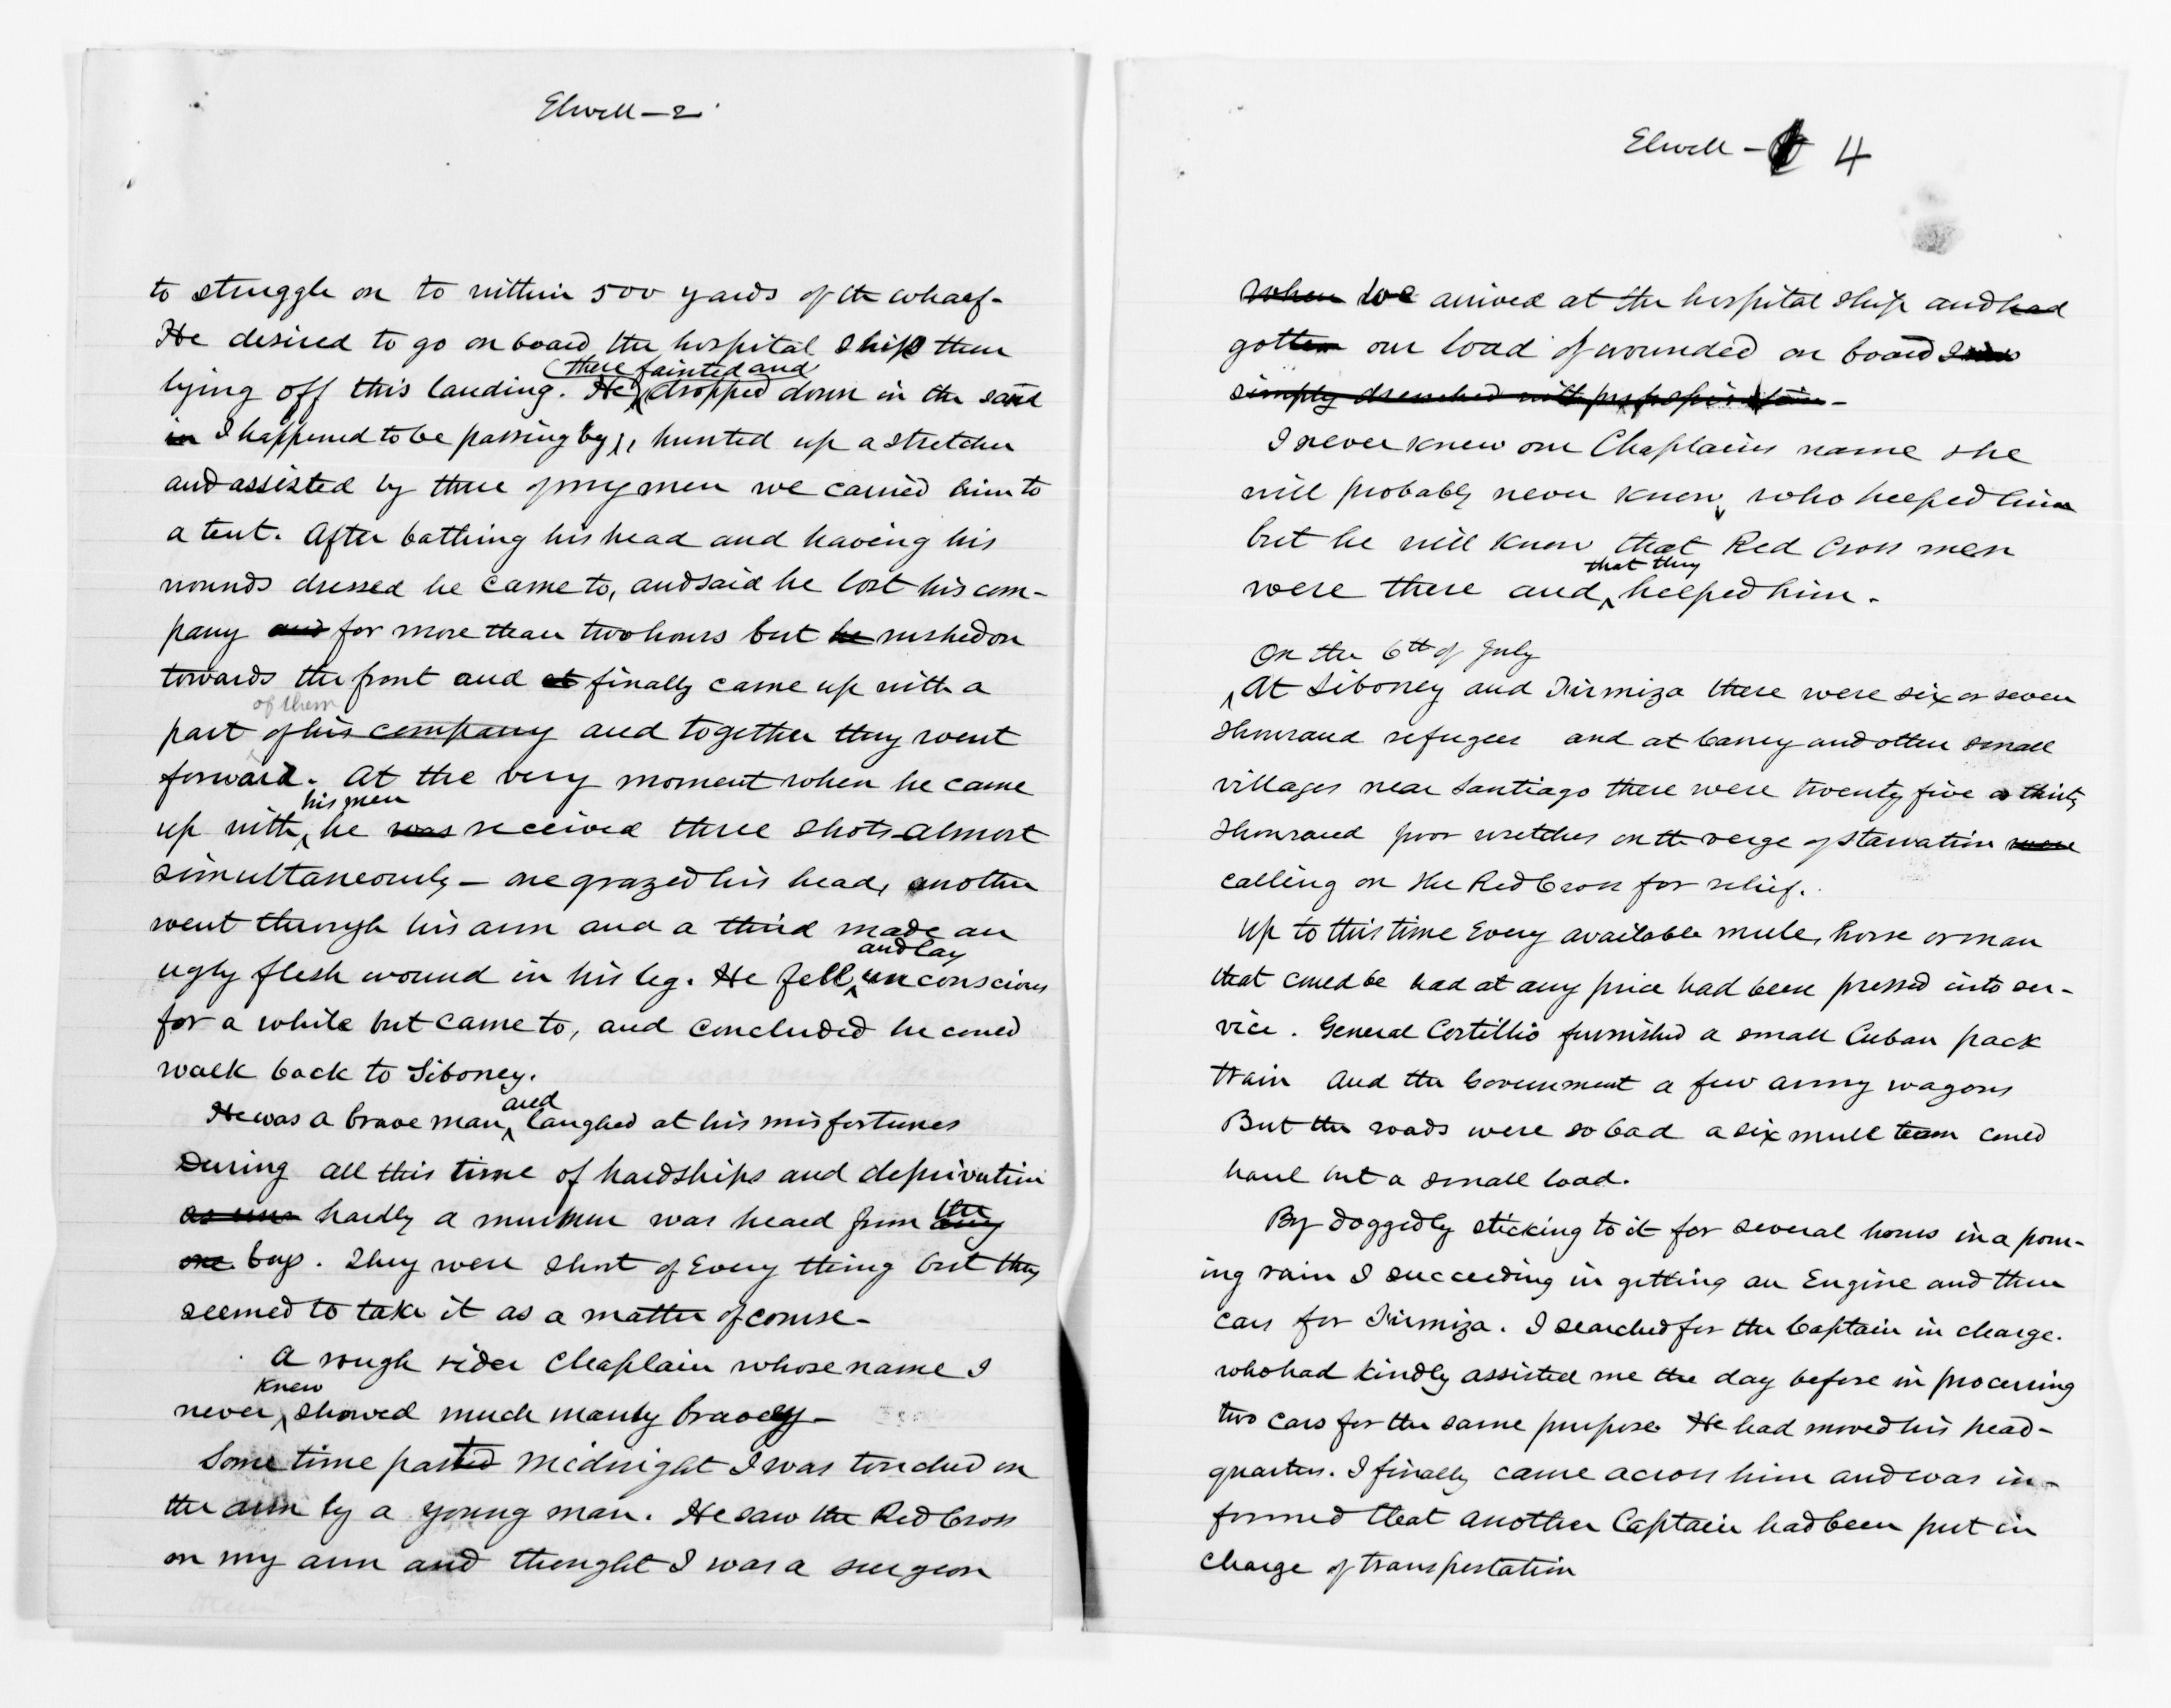 Elwell - 2
to struggle on to within 500 yards of the wharf.
He desired to go on board the hospital ship then
there fainted and
lying off this landing. He dropped down in the sand
in I happened to be passing by, hunted up a stretcher
and assisted by three of my men we carried him to
a tent. After bathing his head and having his
wounds dressed he came to, and said he lost his com-
pany and for more than two hours but he rushed on
towards the front and at finally came up with a
of them
part of his company and together they went
forward. At the very moment when he came
his men
up with he was received three shots almost
simultaneously - one grazed his head, another
went through his arm and a third made an
and lay
ugly flesh wound in his leg. He fell unconscious
for a while but came to, and concluded he could
walk back to Siboney.
and
He was a brave man laughed at his misfortunes
During all this time of hardships and deprivation
hardly a murmur was heard from any the
one boys. They were short of Every thing but they
seemed to take it as a matter of course -
A rough rider Chaplain whose name I
knew
never showed much manly bravery -
Some time passed midnight I was touched on
the arm by a young man. He saw the Red Cross
on my arm and thought I was a surgeon
Elwell - 4
When We arrived at the hospital ship and had
gotten our load of wounded on board I was
simply drenched with perspiration -
I never knew our Chaplains name & he
will probably never know who helped him
but he will know that Red Cross men
that they
were there and helped him.
On the 6th of July
At Siboney and Firmiza there were six or seven
thousand refugees and at Caney and other small
villages near Santiago there were twenty five or thirty
thousand poor wretches on the verge of starvation were
calling on the Red Cross for relief.
Up to this time Every available mule, horse or man
that could be had at any price had been pressed into ser-
vice. General Costillio furnished a small Cuban pack
train And the Government a few army wagons
But the roads were so bad a six mule team could
haul but a small load.
By doggedly sticking to it for several hours in a pour-
ing rain I succeeding in getting an Engine and three
cars for Firmiza. I searched for the Captain in charge.
who had kindly assisted me the day before in procuring
two cars for the same purpose. He had moved his head-
quarters. I finally came across him and was in-
formed that another Captain had been put in
charge of transportation